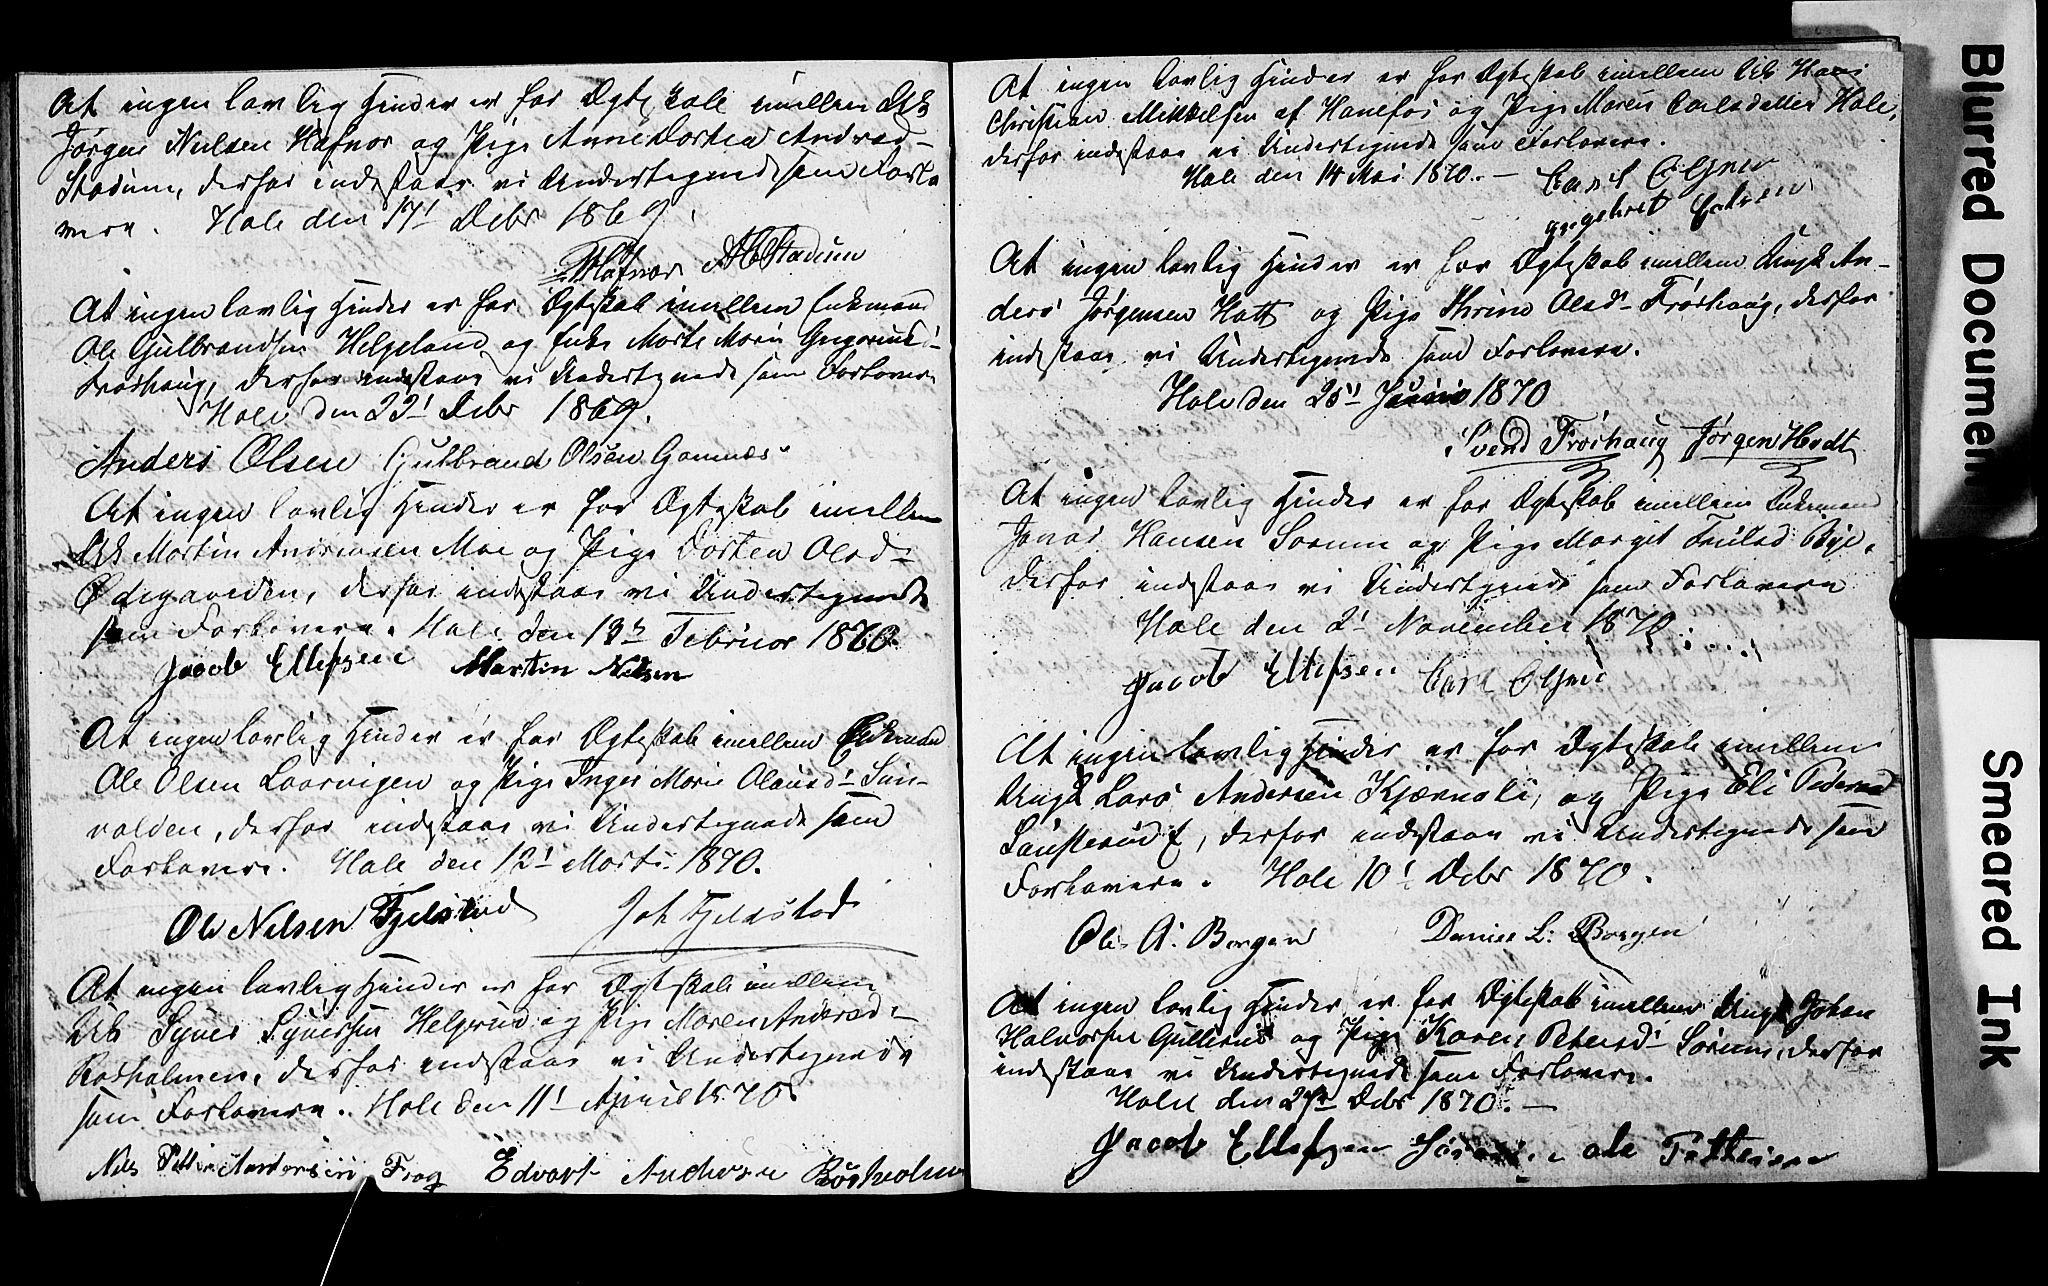 At ingen lovlig Hinder er for Ægteskab imellem Ukb
Jørgen Nielsen Hafnor og Pige Anne Dortea Andrsd-
Stadum, derfor indestaar vi Undertegnede som Forlo
vere. Hole den 17' Debr 1869.
Hafnor Stadum
At ingen lovlig Hinder er for Ægteskab imellem Enkemand
Ole Gulbrandsen Helgeland og Enke Marte Marie Gregorius'-
Frøshaug, derfor indestaar vi Undertegnede som Forlovere
Hole den 22' Debr 1869.
Anders Olsen Gulbrand Olsen Gomnæs
At ingen lovlig Hinder er for Ægteskab imellem
Ukb Martin Andreasen Moe og Pige Dorten Olsd-
Ødegaarden, derfor indestaar vi Undertegnede
som Forlovere. Hole den Februar 1870.
Jacob Ellefsen Martin Nilsen
At ingen lovlig Hinder er for Ægteskab imellem Enkemand
Ole Olsen og Pige Inger Marie Olausd'
derfor indestaar vi Undertegnede som
Forlovere. Hole den 12' Marts 1870.
Ole Nelsen Fjelstad Joh Fjeldstad
At ingen lovlig Hinder er for Ægteskab imellem
Ukb Syver Syversen Helgerud og Pige Maren Andersd-
derfor indestaar vi Undertegnede
som Forlovere. Hole den 11' April 1870.
Nils Petter Andersen Frog Edvart Anderse
At ingen lovlig Hinder er for Ægteskab imellem Ukb Hans
Christian Mikkelsen af Hønefos og Pige Maren Carlsdatter Hole,
derfor indestaar vi Undertegnede som Forlovere.
Hole den 14 Mai 1870. -
Carl Elgner
At ingen lovlig Hinder er for Ægteskab imellem Ungk An-
ders Jørgensen og Pige Thrine Olsd' Frøshaug, derfor
indestaar vi Undertegnede som Forlovere.
Hole den 25' Juni 1870
Svend Frøshaug Jørgen
At ingen lovlig Hinder er for Ægteskab imellem Enkemand
Jonas Hansen Sørum og Pige Margit Bye,
derfor indestaar vi Undertegnede som Forlovere
Hole den 2' November 1870
Jacob Ellefsen Carl Elgner
At ingen lovlig Hinder er for Ægteskab imellem
Ungk Lars Andersen Kjærnsli, og Pige Eli Pedersd
derfor indestaar vi Undertegnede som
Forlovere. Hole 10' Debr 1870.
Ole A. Borgen Daniel L: Borgen
At ingen lovlig Hinder er for Ægteskab imellem Ungk Johan
Halvorsen Gullerud og Pige Karen Petersd' Sørum, derfor
indestaar vi Undertegnede som Forlovere.
Hole den Debr 1870. -
Jacob Ellefsen ole Pettersen
Blurred Documen
Smeared Ink